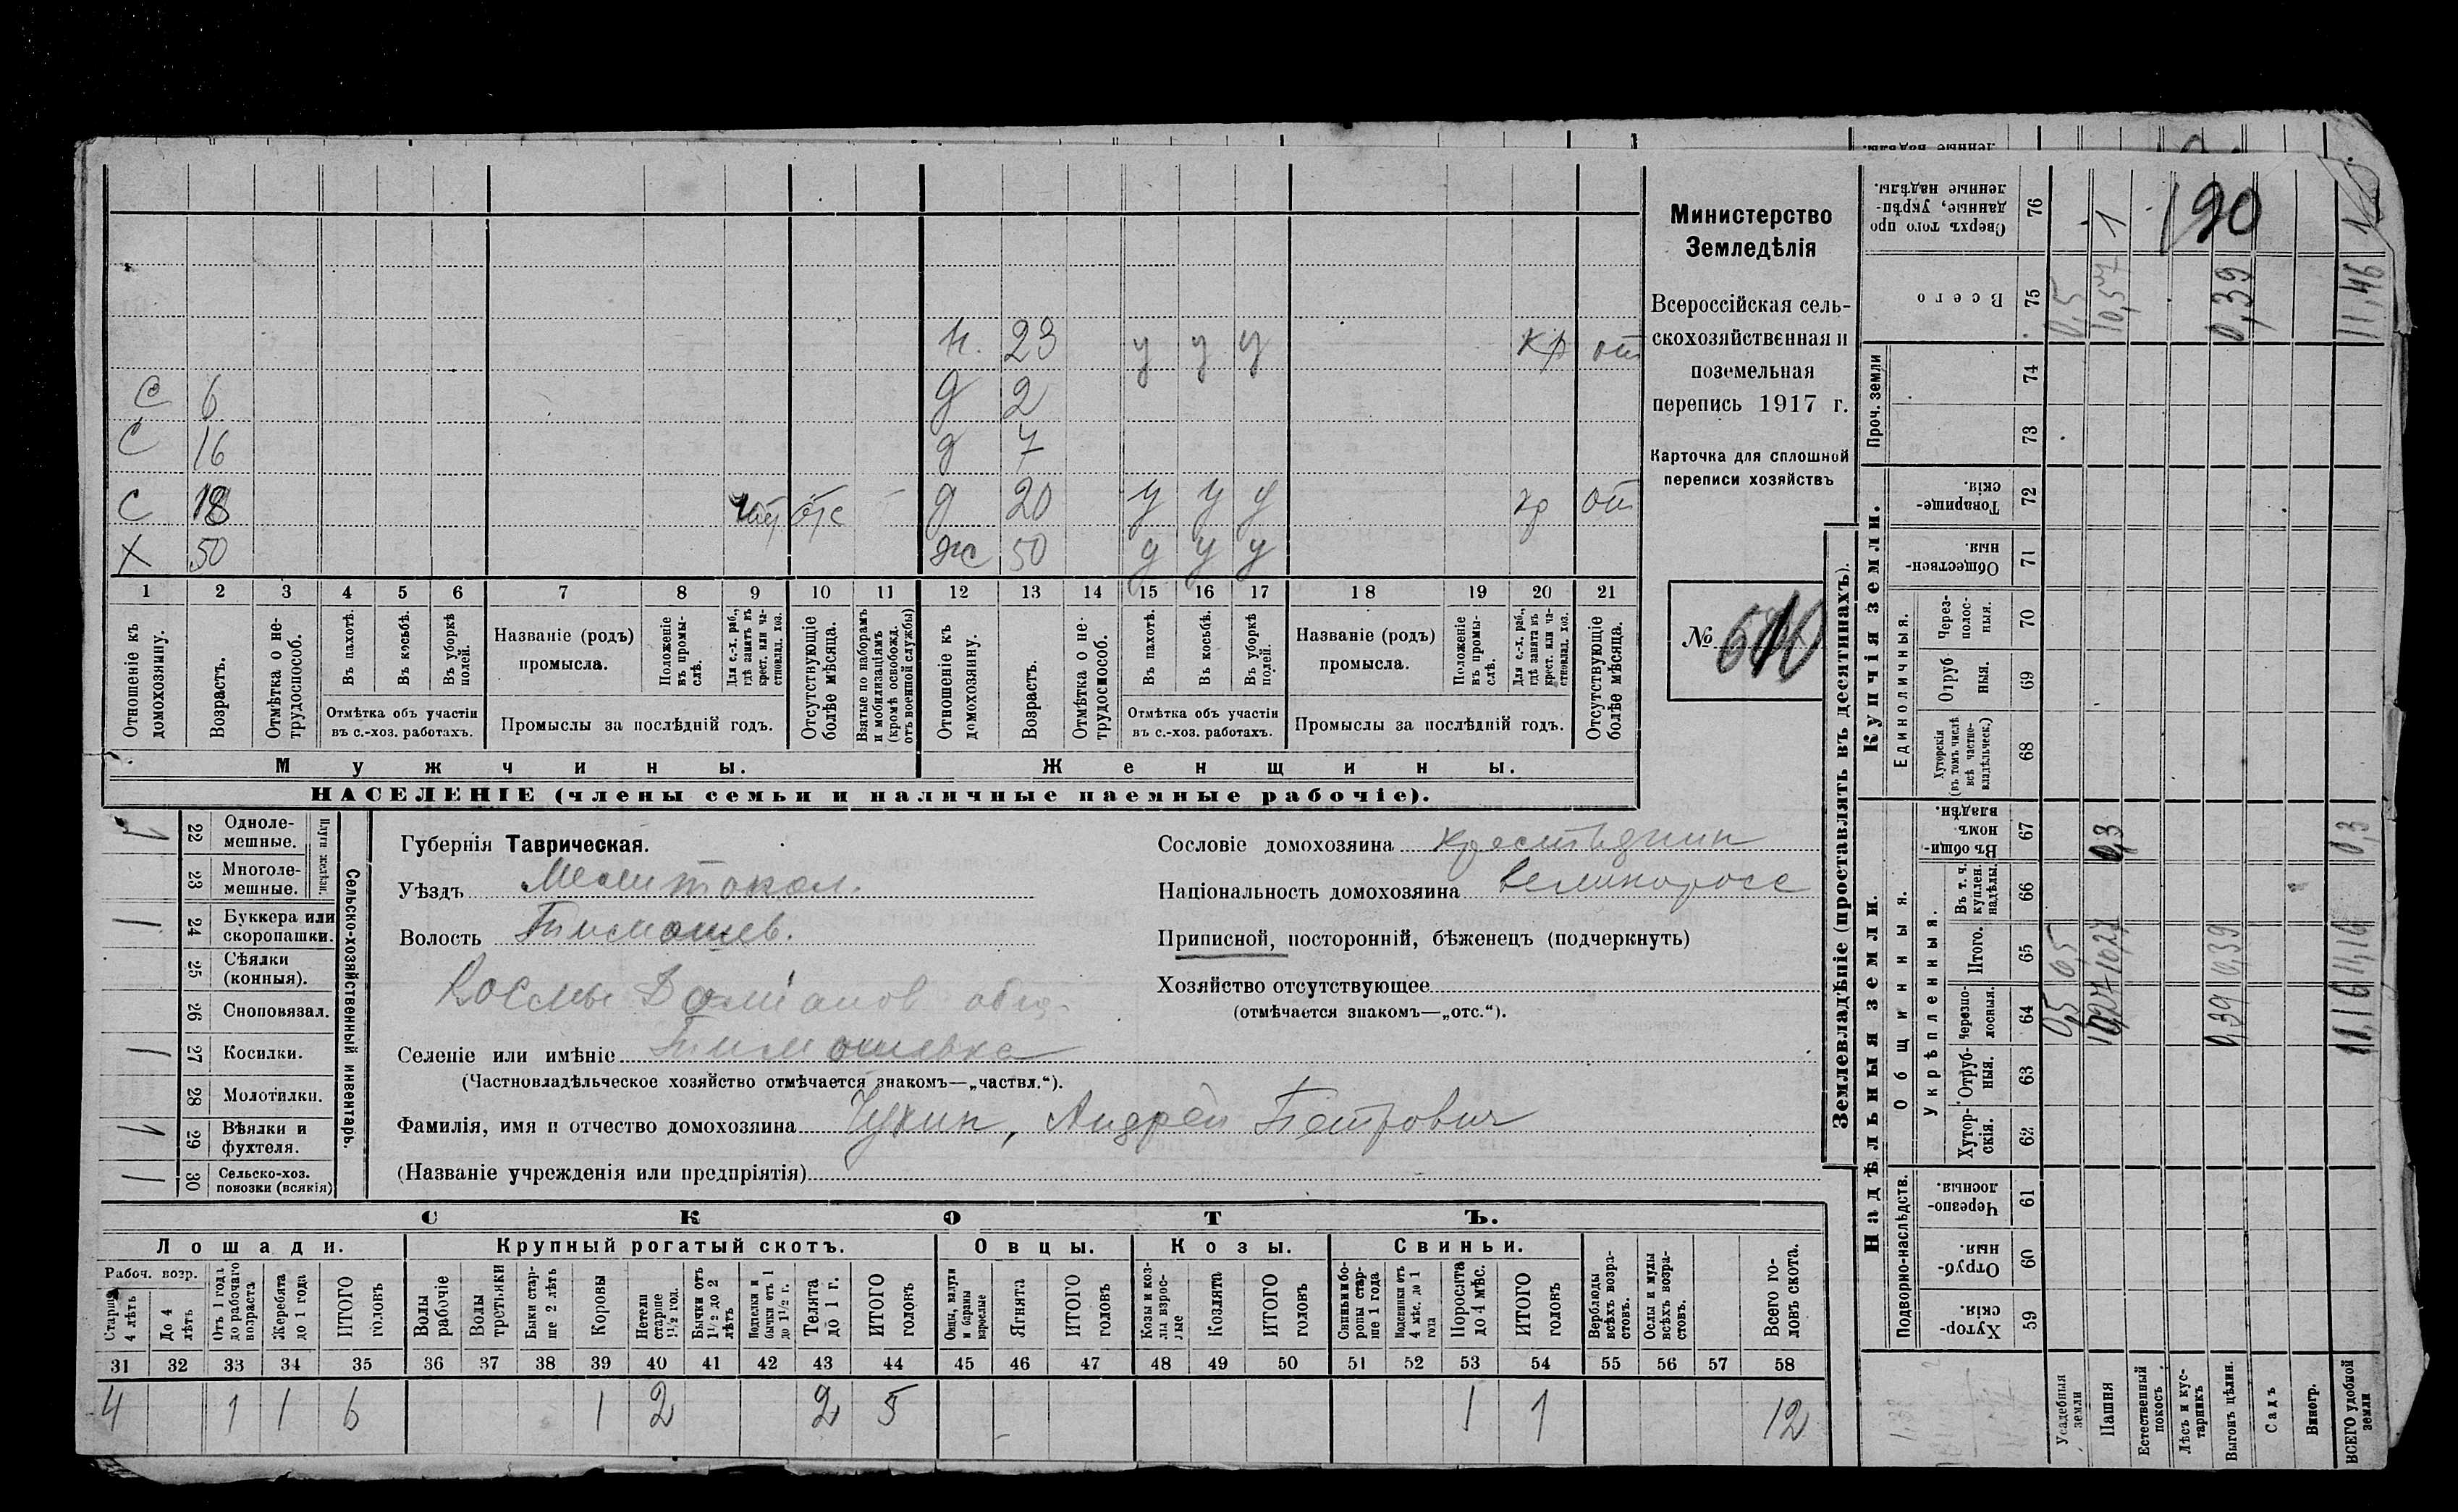 С 6
С 16
С 18
Х 50
н. 23 у у у кр от
д 2
д 7
д 20 у у у кр от
ж 50 у у у
1 2 3 4 5 6 7 8 9 10 11 12 13 14 15 16 17 18 19 20 21
Отношеніе къ домохозяину.
Возрастъ.
Отмѣтка о нетрудоспособ.
Въ пахотѣ.
Въ косьбѣ.
Въ уборкѣ полей.
Отмѣтка объ участіи
въ с.-хоз. работахъ.
Названіе (родъ)
промысла.
Положеніе въ промыслѣ.
Для с.-х. раб., гдѣ занятъ въ крест. или частновлад. хоз.
Промыслы за послѣдній годъ.
Отсутствующіе болѣе мѣсяца.
Взятые по наборамъ и мобилизаціямъ (кромѣ освобожд. отъ военной службы)
Отношеніе къ домохозяину.
Возрастъ.
Отмѣтка о нетрудоспособ.
Въ пахотѣ.
Въ косьбѣ.
Въ уборкѣ полей.
Отмѣтка объ участіи
въ с.-хоз. работахъ.
Названіе (родъ)
промысла.
Положеніе въ промыслѣ.
Для с.-х. раб., гдѣ занята въ крест. или частновлад. хоз.
Промыслы за послѣдній годъ.
Отсутствующіе болѣе мѣсяца.
Мужчины.
Женщины.
НАСЕЛЕНІЕ (члены семьи и наличные наемные рабочіе).
Министерство
Земледѣлія
Всероссійская сель-
скохозяйственная и
поземельная
перепись 1917 г.
Карточка для сплошной
переписи хозяйствъ
№
22 Одноле-
мешные.
23 Многоле-
мешные.
Плуги желѣзн.
1 24 Буккера или
скоропашки.
25 Сѣялки
(конныя).
26 Сноповязал.
1 27 Косилки.
28 Молотилки.
29 Вѣялки и
фухтеля.
1 30 Сельско-хоз.
повозки (всякія)
Сельско-хозяйственный инвентарь.
Губернія Таврическая.
Уѣздъ Мелитопол.
Волость Тимошев.
Космы Даміанов общ.
Селеніе или имѣніе Тимошевка
(Частновладѣльческое хозяйство отмѣчается знакомъ—„частвл.“).
Фамилія, имя и отчество домохозяина Чухин, Андрей Петрович
(Названіе учрежденія или предпріятія)
Сословіе домохозяина крестьянин
Національность домохозяина великоросс
Приписной, посторонній, бѣженецъ (подчеркнуть)
Хозяйство отсутствующее
(отмѣчается знакомъ—„отс.“).
СКОТЪ.
Лошади. Крупный рогатый скотъ. Овцы. Козы. Свиньи.
Рабоч. возр.
Старше 4 лѣтъ
До 4 лѣтъ
Отъ 1 года до рабочаго возраста
Жеребята до 1 года
ИТОГО головъ
Волы рабочіе
Волы третьяки
Быки старше 2 лѣтъ
Коровы
Нетели старше 1½ год.
Бычки отъ 1½ до 2 лѣтъ
Подтелки и бычки отъ 1 до 1½ г.
Телята до 1 г.
ИТОГО головъ
Овцы, валухи и бараны взрослые
Ягнята
ИТОГО головъ
Козы и козлы взрослые
Козлята
ИТОГО головъ
Свиньи и боровы старше 1 года
Подсвинки отъ 4 мѣс. до 1 года
Поросята до 4 мѣс.
ИТОГО головъ
Верблюды всѣхъ возрастовъ.
Ослы и мулы всѣхъ возрастовъ.
Всего головъ скота.
31 32 33 34 35 36 37 38 39 40 41 42 43 44 45 46 47 48 49 50 51 52 53 54 55 56 57 58
4 1 1 6 1 2 2 5 1 1 12
Землевладѣніе (проставлять въ десятинахъ).
190
Сверхъ того проданные, укрѣпленные надѣлы. 76 1
Всего 75 0,5 10,57 0,39 11,46
Проч. земли
74
73
Купчія земли.
Товарищескія. 72
Общественныя. 71
Единоличныя.
Черезполосныя. 70
Отрубныя. 69
Хуторскія (въ томъ числѣ всѣ частновладѣльческ.) 68
Надѣльныя земли.
Общинныя.
Въ общинномъ владѣн. 67 0,3 0,3
Укрѣпленныя.
Въ т. ч. куплен. надѣлы. 66
Итого. 65 0,5 10,27 0,39 11,16
Черезполосныя. 64 0,5 10,27 0,39 11,16
Отрубныя. 63
Хуторскія. 62
Подворно-наслѣдств.
Черезполосныя. 61
Отрубныя. 60
Хуторскія. 59
Усадебныя земли
Пашня
Естественный покосъ
Лѣсъ и кустарникъ
Выгонъ цѣлин.
Садъ
Виногр.
ВСЕГО удобной земли